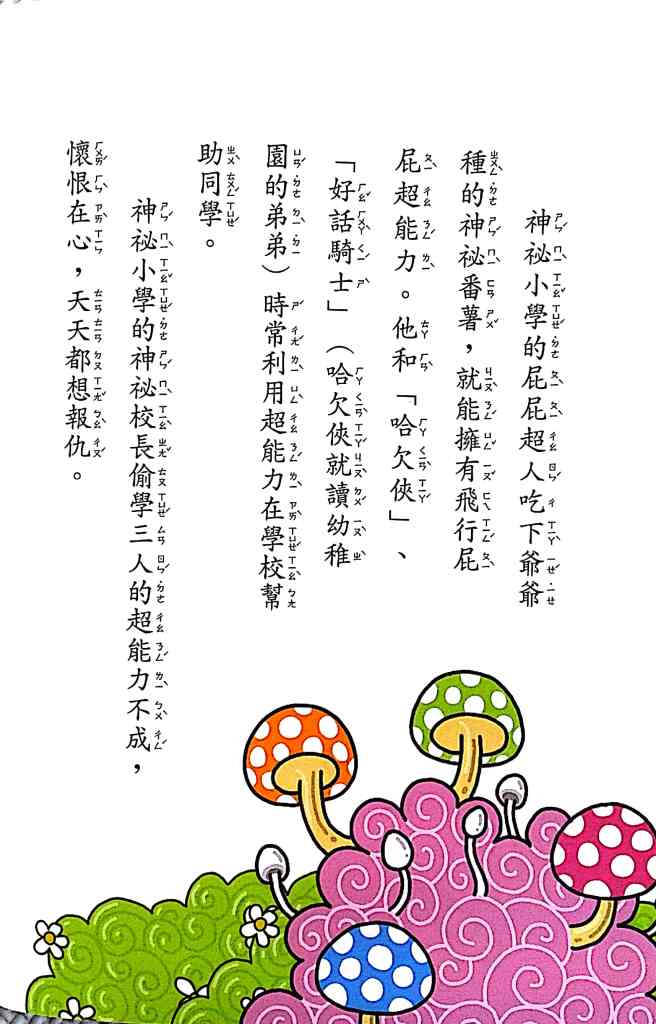 神祕小學的屁屁超人吃下爺爺
種的神祕番薯，就能擁有飛行屁
屁超能力。他和「哈欠俠」、
「好話騎士」（哈欠俠就讀幼稚
園的弟弟）時常利用超能力在學校幫
助同學。
神祕小學的神祕校長偷學三人的超能力不成，
懷恨在心，天天都想報仇。